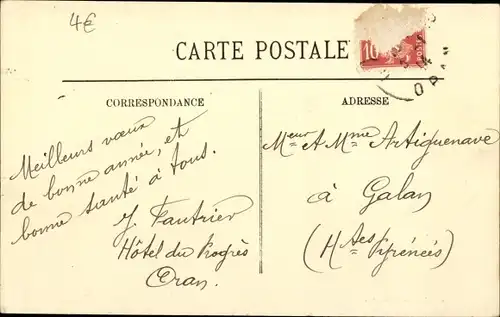 4€
CARTE POSTALE
10
POSTES
ORAN
CORRESPONDANCE
ADRESSE
Meilleurs vœux
de bonne année, et
bonne santé à tous.
J. Fautrier
Hôtel du Progrès
Oran.
Meur & Mme Artiguenave
à Galan
(Htes Pyrénées)